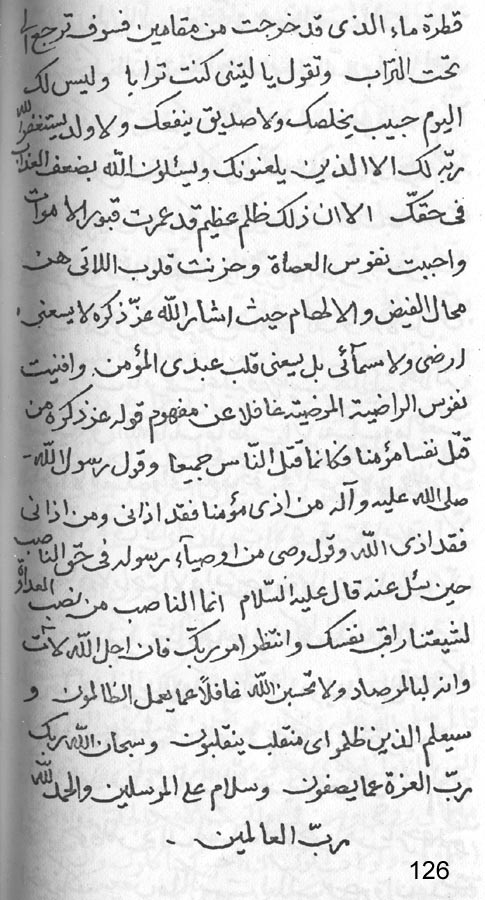 قطرة ماء الذی قد خرجت من مقامین فسوف ترجع الی
تحت التراب وتقول یا لیتنی کنت ترابا ولیس لک
الیوم حبیب یخلصک ولا صدیق ینفعک ولا ولد یستغفر الله
ربّه لک الا الذین یلعنونک ویسئلون الله بضعف العذاب
فی حقکّ الا ان ذلک ظلم عظیم قد عمرت قبور الاموات
واحببت نفوس العصاة وحزنت قلوب اللاتی هن
محال الفیض والالهام حیث اشار الله عزّ ذکره لا یسعنی
ارضی ولا سمآئی بل یسعنی قلب عبدی المؤمن وافنیت
نفوس الراضیة المرضیة غافلا عن مفهوم قوله عز ذکره من
قتل نفسا مؤمنا فکانما قتل النّاس جمیعا وقول رسول الله
صلی الله علیه وآله من اذی مؤمنا فقد اذانی ومن اذانی
فقد اذی الله وقول وصی من اوصیآء رسوله فی حق الناصب
حین سئل عنه قال علیه السّلام انما الناصب من نصب العداوة
لشیعتنا راقب نفسک وانتظر امر ربکّ فان اجل الله لآت
وانه لبالمرصاد ولا تحسبن الله غافلاً عما یعمل الظالمون و
سیعلم الذین ظلموا ای منقلب ینقلبون وسبحان الله ربک
ربّ العزة عما یصفون وسلام علی المرسلین والحمد لله
ربّ العالمین .
126